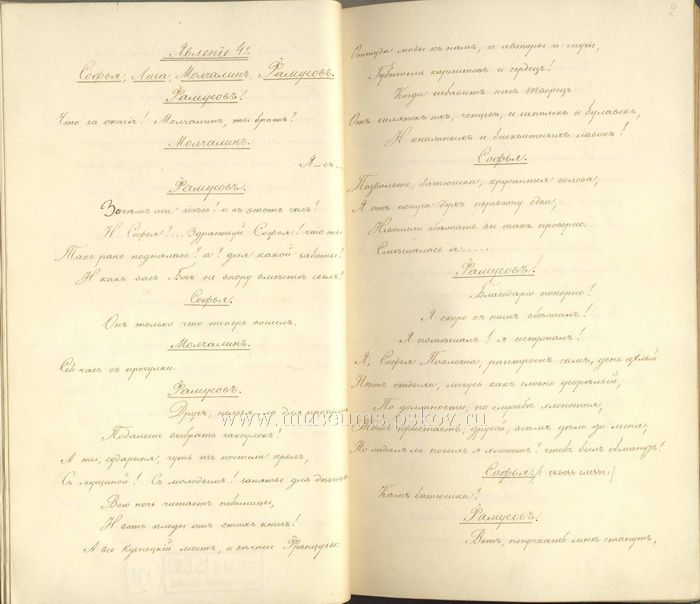 Явленіе 4е
Софья, Лиза, Молчалинъ, Фамусовъ.
Фамусовъ!
Что за оказія! Молчалинъ, ты братъ?
Молчалинъ.
Я-съ...
Фамусовъ.
Зачемъ же здѣсь! и въ этотъ часъ!
И Софья?... Здравствуй Софья! что ты
Такъ рано поднялась? а? для какой заботы?
И какъ васъ Богъ не впору вмѣстѣ свелъ?
Софья.
Онъ только что теперь вошелъ.
Молчалинъ.
Сей часъ съ прогулки.
Фамусовъ.
Другъ, нельзя ли для прогулокъ
Подальше выбрать закоулокъ?
А ты, сударыня, чуть изъ постели прыгъ,
Съ мущиной! Съ молодымъ! занятье для дѣвицы
Всю ночь читаетъ небылицы,
И вотъ плоды отъ этихъ книгъ!
А все Кузнецкій мостъ, и вѣчные Французы:
2
Оттуда моды къ намъ, и авторы и музы,
Губители кармановъ и сердецъ!
Когда избавитъ насъ Творецъ
Отъ шляпокъ ихъ, чепцовъ, и шпилекъ и булавокъ,
И книжныхъ и бисквитныхъ лавокъ!
Софья.
Позвольте, батюшка, кружится голова,
Я отъ испуга духъ перевожу едва,
Изволили вбѣжать вы такъ проворно:
Смѣшалась я.....
Фамусовъ.
Благодарю покорно!
Я скоро къ нимъ вбѣжалъ!
Я помѣшалъ! я испугалъ!
Я, Софья Павловна, разстроенъ самъ, день цѣлый
Нѣтъ отдыха, мечусь какъ словно угорѣлый,
По должности, по службѣ хлопотня,
Тотъ пристаетъ, другой, всѣмъ дѣло до меня;
Но ждалъ ли новыхъ я хлопотъ? чтобъ былъ обманутъ!
Софья. /: сквозь слезы:/
Кѣмъ батюшка?
Фамусовъ.
Вотъ, попрекать мнѣ станутъ,
www.museums.pskov.ru